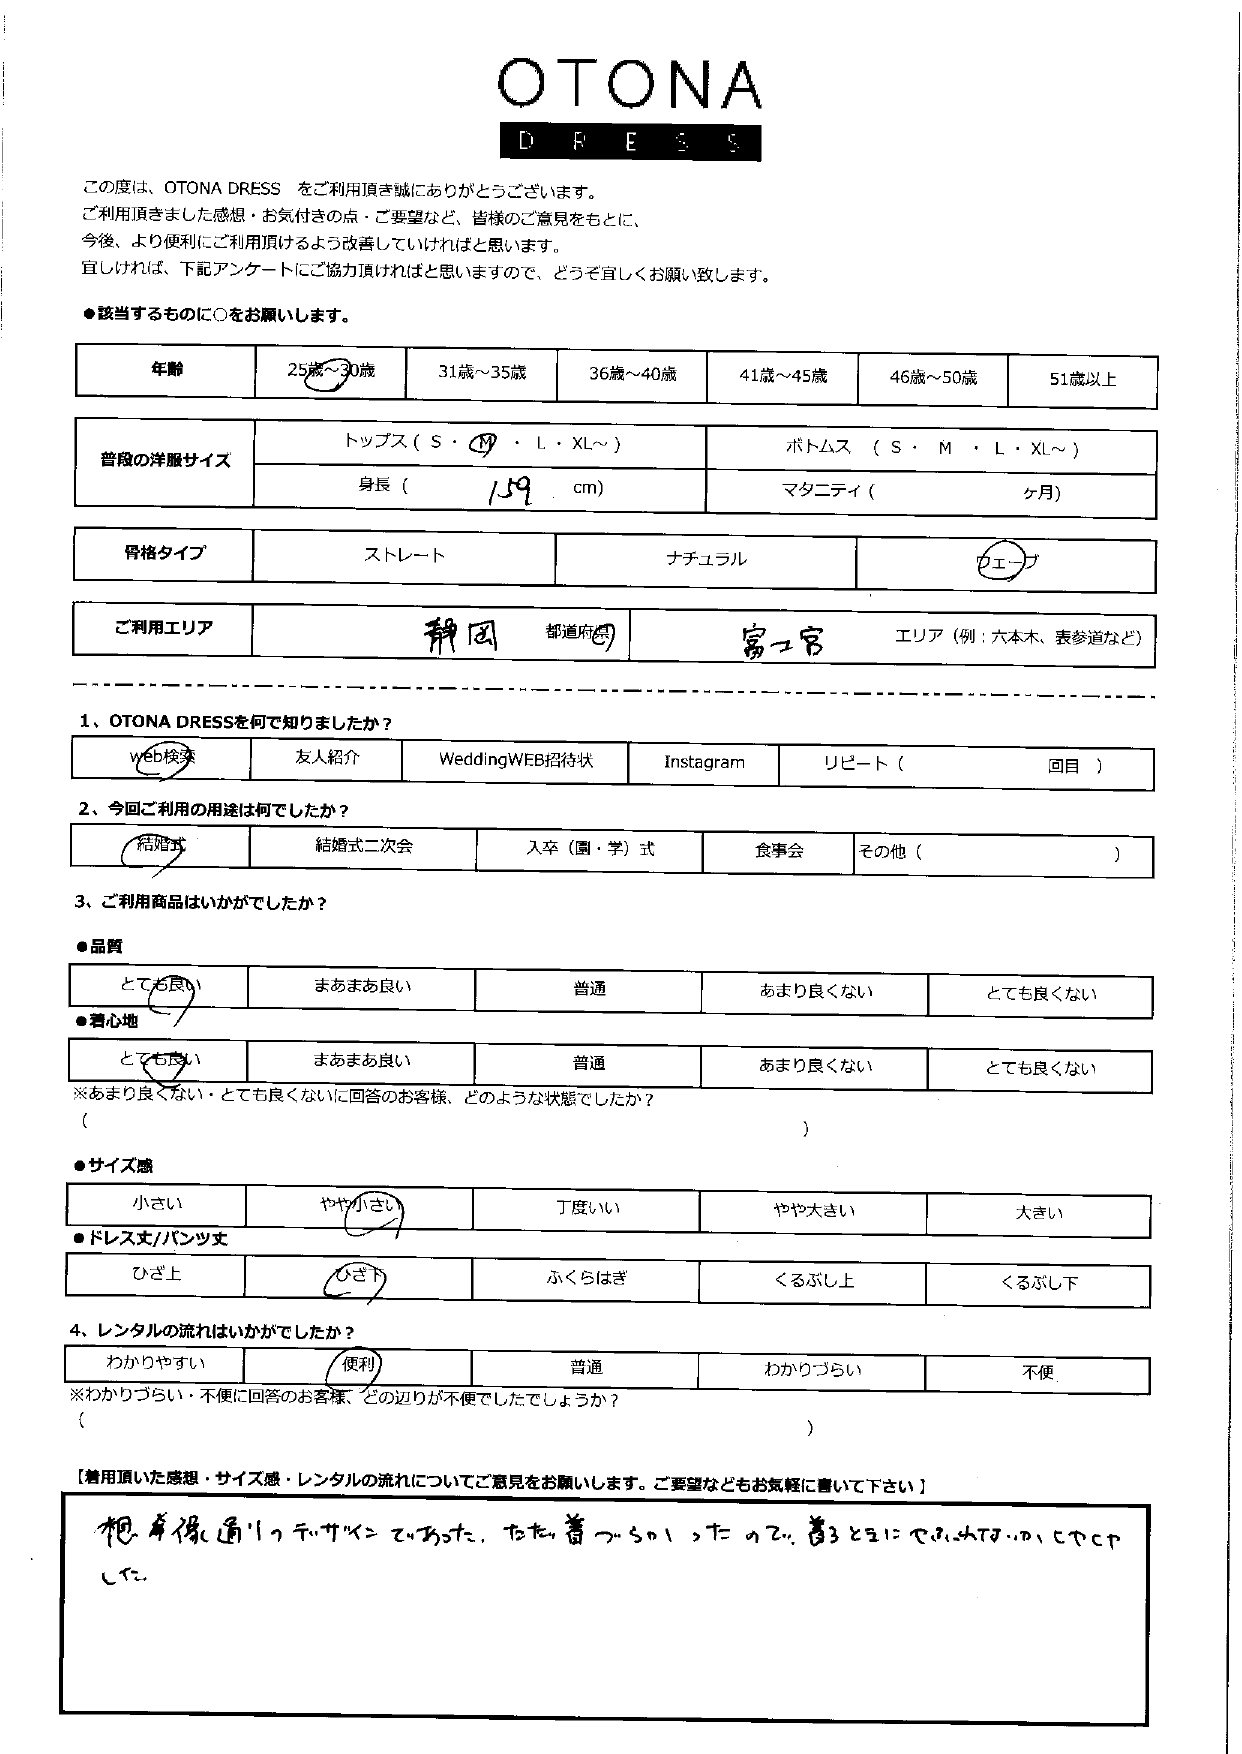 OTONA
DRESS
この度は、OTONA DRESS　をご利用頂き誠にありがとうございます。
ご利用頂きました感想・お気付きの点・ご要望など、皆様のご意見をもとに、
今後、より便利にご利用頂けるよう改善していければと思います。
宜しければ、下記アンケートにご協力頂ければと思いますので、どうぞ宜しくお願い致します。
●該当するものに○をお願いします。
年齢 25歳～30歳 31歳～35歳 36歳～40歳 41歳～45歳 46歳～50歳 51歳以上
普段の洋服サイズ トップス ( S ・ M ・ L ・ XL～ ) ボトムス ( S ・ M ・ L ・ XL～ )
身長 ( 159 cm) マタニティ ( ヶ月)
骨格タイプ ストレート ナチュラル ウェーブ
ご利用エリア 静岡 都道府県 富士宮 エリア（例：六本木、表参道など）
1、OTONA DRESSを何で知りましたか？
web検索 友人紹介 WeddingWEB招待状 Instagram リピート（ 回目 ）
2、今回ご利用の用途は何でしたか？
結婚式 結婚式二次会 入卒（園・学）式 食事会 その他（ ）
3、ご利用商品はいかがでしたか？
●品質
とても良い まあまあ良い 普通 あまり良くない とても良くない
●着心地
とても良い まあまあ良い 普通 あまり良くない とても良くない
※あまり良くない・とても良くないに回答のお客様、どのような状態でしたか？
( )
●サイズ感
小さい やや小さい 丁度いい やや大きい 大きい
●ドレス丈/パンツ丈
ひざ上 ひざ下 ふくらはぎ くるぶし上 くるぶし下
4、レンタルの流れはいかがでしたか？
わかりやすい 便利 普通 わかりづらい 不便
※わかりづらい・不便に回答のお客様、どの辺りが不便でしたでしょうか？
( )
【着用頂いた感想・サイズ感・レンタルの流れについてご意見をお願いします。ご要望などもお気軽に書いて下さい】
想像通りのデザインであった。ただ、着づらかったので、着るときにやぶれないかヒヤヒヤ
した。